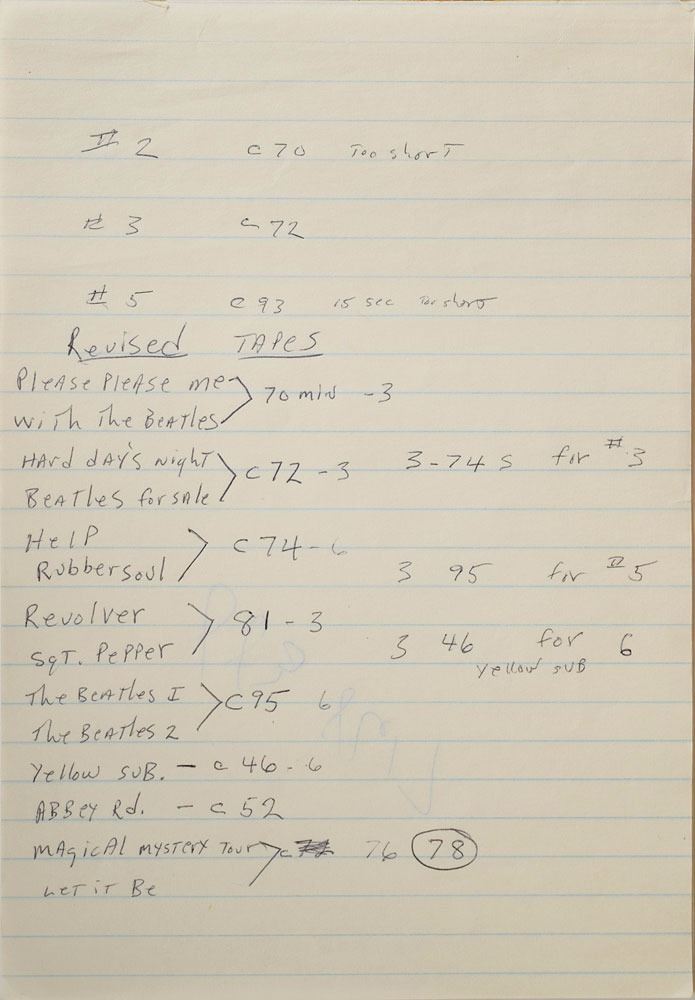 # 2 c 70 Too short
# 3 c 72
# 5 c 93 15 sec Too short
Revised TAPES
Please Please me
70 min - 3
With The Beatles
HArd dAY's night
c 72 - 3 3 - 74 s for # 3
Beatles for sale
HelP
c 74 - 6
Rubbersoul
3 95 for # 5
Revolver
81 - 3
3 46 for 6
SgT. PePPer
Yellow SUB
The Beatles I
c 95 6
The Beatles 2
Yellow SUB. - c 46 - 6
ABBey Rd. - c 52
MAgicAl MYSTERY Tour c 76 78
LeT iT Be